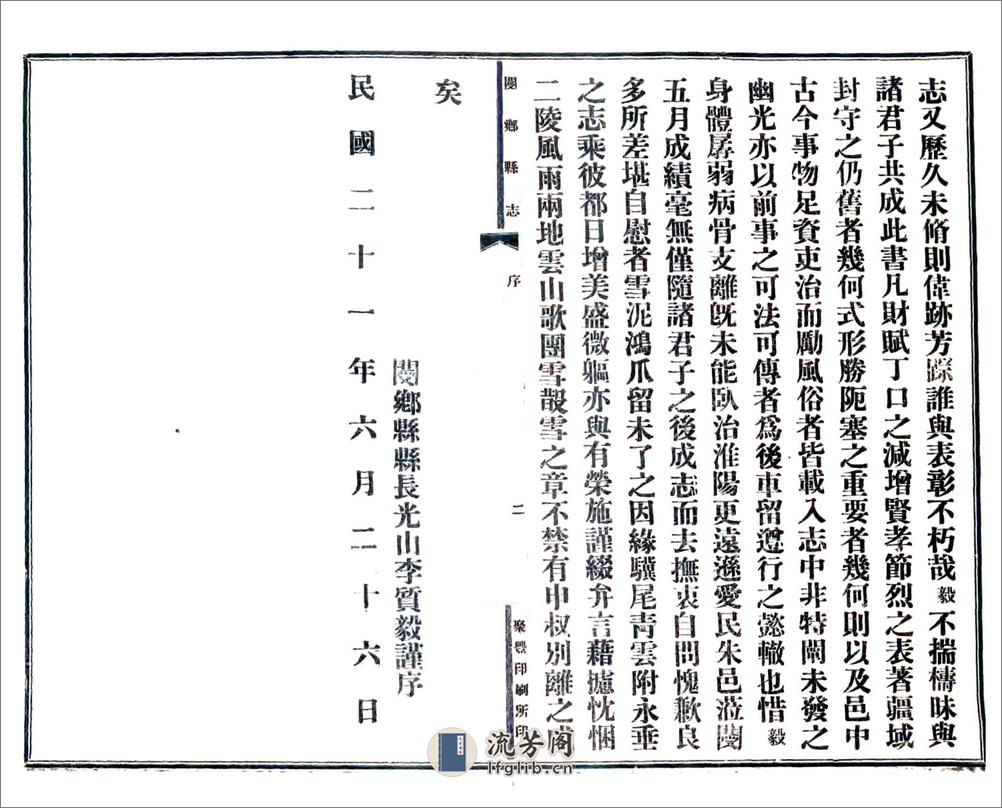 志又歷久未脩則偉跡芳踪誰與表彰不朽哉毅不揣檮昧與
諸君子共成此書凡財賦丁口之減增賢孝節烈之表著疆域
封守之仍舊者幾何式形勝阨塞之重要者幾何則以及邑中
古今事物足資吏治而勵風俗者皆載入志中非特闡未發之
幽光亦以前事之可法可傳者爲後車留遵行之懿轍也惜毅
身體孱弱病骨支離旣未能臥治淮陽更遠遜愛民朱邑蒞閿
五月成績毫無僅隨諸君子之後成志而去撫衷自問愧歉良
多所差堪自慰者雪泥鴻爪留未了之因緣驥尾靑雲附永垂
之志乘彼都日增美盛微軀亦與有榮施謹綴弁言藉攄忱悃
二陵風雨兩地雲山歌團雪散雪之章不禁有申叔別離之
閿鄉縣志 序 二 聚豐印刷所印
矣
閿鄉縣縣長光山李質毅謹序
民國二十一年六月二十六日
流芳阁
lfglib.cn